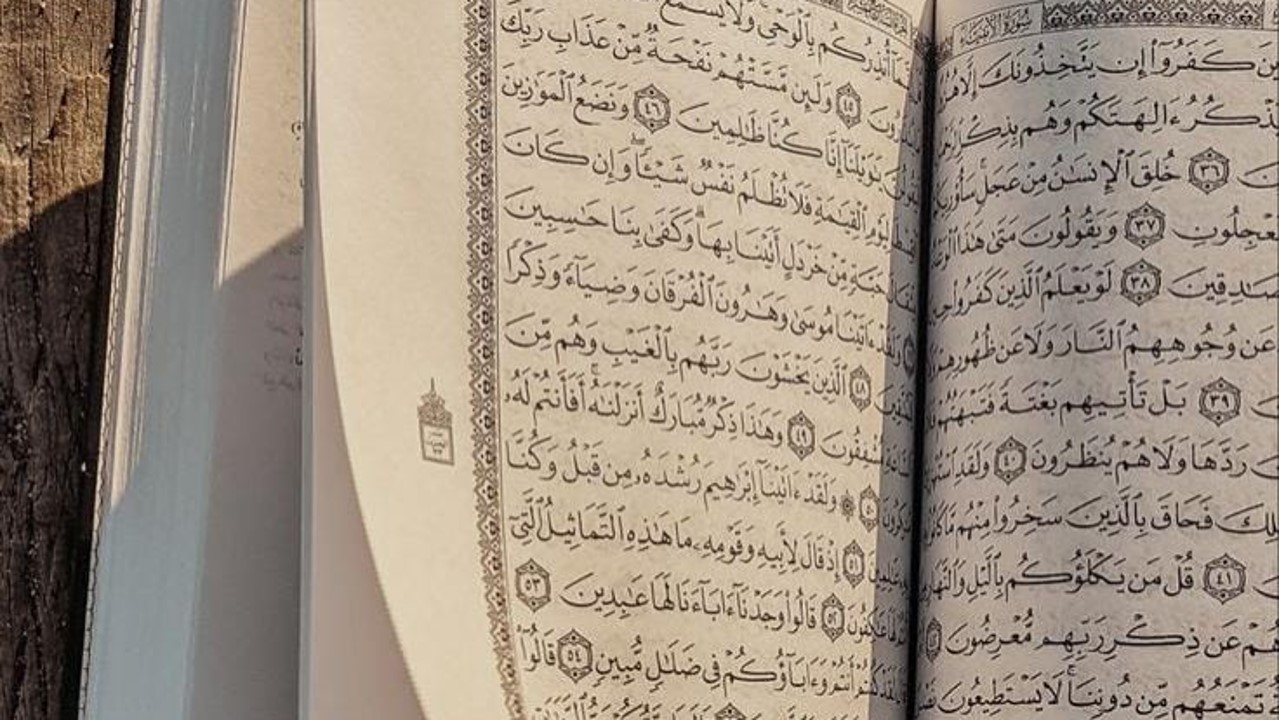 سُورَةُ الأَنبِيَاءِ
كَفَرُوٓا۟ إِن يَتَّخِذُونَكَ إِلَّا
ءَالِهَتَكُمْ وَهُم بِذِكْرِ
٣٦ خُلِقَ ٱلْإِنسَٰنُ مِنْ عَجَلٍ ۚ
٣٧ وَيَقُولُونَ مَتَىٰ هَٰذَا
صَٰدِقِينَ ٣٨ لَوْ يَعْلَمُ ٱلَّذِينَ كَفَرُوا۟
عَن وُجُوهِهِمُ ٱلنَّارَ وَلَا عَن ظُهُورِهِمْ
٣٩ بَلْ تَأْتِيهِم بَغْتَةً فَتَبْهَتُهُمْ
رَدَّهَا وَلَا هُمْ يُنظَرُونَ ٤٠ وَلَقَدِ
فَحَاقَ بِٱلَّذِينَ سَخِرُوا۟ مِنْهُم مَّا
٤١ قُلْ مَن يَكْلَؤُكُم بِٱلَّيْلِ وَٱلنَّهَارِ
عَن ذِكْرِ رَبِّهِم مُّعْرِضُونَ ٤٢
تَمْنَعُهُم مِّن دُونِنَا ۚ لَا يَسْتَطِيعُونَ
أُنذِرُكُم بِٱلْوَحْىِ ۚ وَلَا يَسْمَعُ
٤٥ وَلَئِن مَّسَّتْهُمْ نَفْحَةٌ مِّنْ عَذَابِ رَبِّكَ
يَٰوَيْلَنَآ إِنَّا كُنَّا ظَٰلِمِينَ ٤٦ وَنَضَعُ ٱلْمَوَٰزِينَ
لِيَوْمِ ٱلْقِيَٰمَةِ فَلَا تُظْلَمُ نَفْسٌ شَيْـًٔا ۖ وَإِن كَانَ
حَبَّةٍ مِّنْ خَرْدَلٍ أَتَيْنَا بِهَا ۗ وَكَفَىٰ بِنَا حَٰسِبِينَ
وَلَقَدْ ءَاتَيْنَا مُوسَىٰ وَهَٰرُونَ ٱلْفُرْقَانَ وَضِيَآءً وَذِكْرًا
٤٨ ٱلَّذِينَ يَخْشَوْنَ رَبَّهُم بِٱلْغَيْبِ وَهُم مِّنَ
مُشْفِقُونَ ٤٩ وَهَٰذَا ذِكْرٌ مُّبَارَكٌ أَنزَلْنَٰهُ ۚ أَفَأَنتُمْ لَهُۥ
٥٠ ۞ وَلَقَدْ ءَاتَيْنَآ إِبْرَٰهِيمَ رُشْدَهُۥ مِن قَبْلُ وَكُنَّا
٥١ إِذْ قَالَ لِأَبِيهِ وَقَوْمِهِۦ مَا هَٰذِهِ ٱلتَّمَاثِيلُ ٱلَّتِىٓ
عَٰكِفُونَ ٥٢ قَالُوا۟ وَجَدْنَآ ءَابَآءَنَا لَهَا عَٰبِدِينَ ٥٣
كُنتُمْ أَنتُمْ وَءَابَآؤُكُمْ فِى ضَلَٰلٍ مُّبِينٍ ٥٤ قَالُوٓا۟